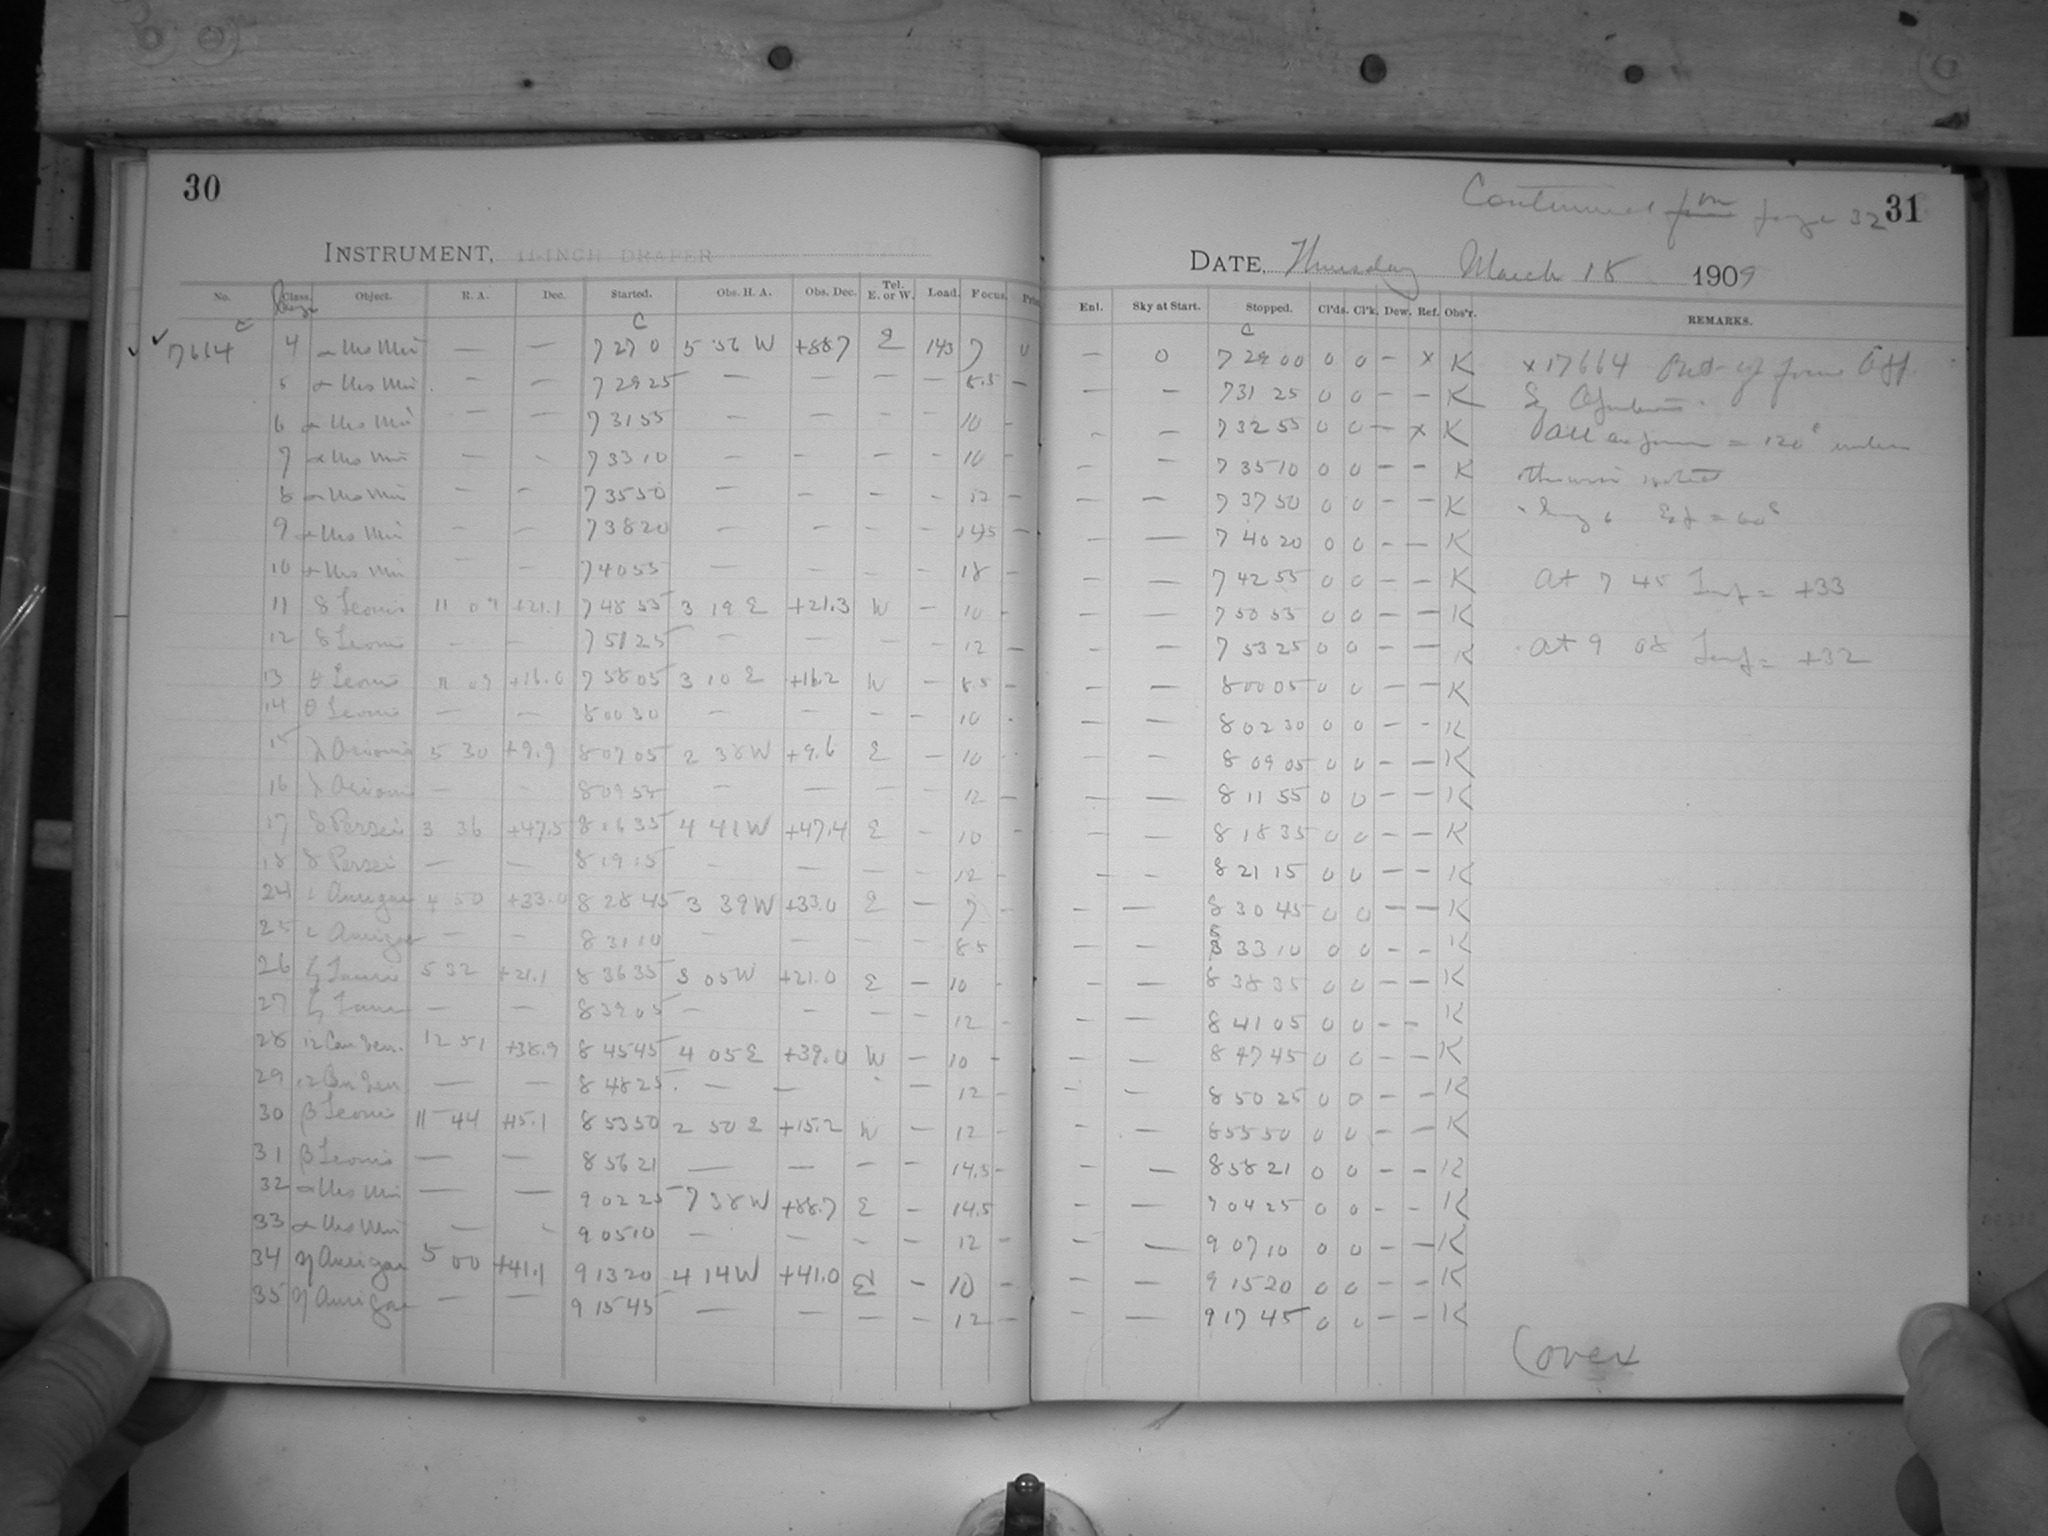 30
INSTRUMENT, 11-INCH DRAPER
No. Class. Object. R. A. Dec. Started. Obs. H. A. Obs. Dec. Tel. E. or W. Load. Focus.
C
17664 4 α Urs Min — — 7 27 0 5 36 W +88.7 E 143 7 0
5 α Urs Min. — — 7 29 25 — — — — 8.5 —
6 α Urs Min — — 7 31 55 — — — — 10 —
7 α Urs Min — — 7 33 10 — — — — 10 —
8 α Urs Min — — 7 35 50 — — — — 12 —
9 α Urs Min — — 7 38 20 — — — — 14.5 —
10 α Urs Min — — 7 40 55 — — — — 18 —
11 δ Leonis 11 09 +21.1 7 48 55 3 19 E +21.3 W — 10 —
12 δ Leonis — — 7 51 25 — — — — 12 —
13 θ Leonis 11 09 +16.0 7 58 05 3 10 E +16.2 W — 8.5 —
14 θ Leonis — — 8 00 30 — — — — 10 -
15 λ Orionis 5 30 +9.9 8 07 05 2 38 W +9.6 E — 10 -
16 λ Orionis — — 8 09 55 — — — — 12 —
17 δ Persei 3 36 +47.5 8 16 35 4 41 W +47.4 E — 10 -
18 δ Persei — — 8 19 15 — — — — 12 —
24 ι Aurigae 4 50 +33.0 8 28 45 3 39 W +33.0 E — 7 -
25 ι Aurigae — — 8 31 10 — — — — 8.5
26 ζ Tauri 5 32 +21.1 8 36 35 3 05 W +21.0 E — 10 -
27 ζ Tauri — — 8 39 05 — — — — 12 -
28 12 Can Ven. 12 51 +38.9 8 45 45 4 05 E +39.0 W — 10 -
29 12 Can Ven — — 8 48 25 — — — 12 -
30 β Leonis 11 44 +15.1 8 53 50 2 50 E +15.2 W — 12 -
31 β Leonis — — 8 56 21 — — — — 14.5 -
32 α Urs Min — — 9 02 25 7 38 W +88.7 E — 14.5
33 α Urs Min — — 9 05 10 — — — — 12 —
34 η Aurigae 5 00 +41.1 9 13 20 4 14 W +41.0 E — 10 -
35 η Aurigae — — 9 15 45 — — — — 12 —
Continued from on page 32 31
DATE, Thursday March 18 1909
Enl. Sky at Start. Stopped. Cl'ds. Cl'k. Dew. Ref. Obs'r. REMARKS.
C
— 0 7 29 00 0 0 — x K x 17664 Out of focus
— — 7 31 25 0 0 — — K
— — 7 32 55 0 0 — x K = 120s unless
— — 7 35 10 0 0 — — K otherwise noted
— — 7 37 50 0 0 — — K = 60s
— — 7 40 20 0 0 — — K
— — 7 42 55 0 0 — — K At 7 45 Temp = +33
— — 7 50 55 0 0 — — K
— — 7 53 25 0 0 — — K At 9 08 Temp = +32
— — 8 00 05 0 0 — — K
— — 8 02 30 0 0 — - K
— — 8 09 05 0 0 — — K
— — 8 11 55 0 0 — — K
— — 8 18 35 0 0 — — K
- — 8 21 15 0 0 — — K
— — 8 30 45 0 0 — — K
— — 8 33 10 0 0 — - K
— — 8 38 35 0 0 — — K
— — 8 41 05 0 0 — — K
— — 8 47 45 0 0 — — K
— — 8 50 25 0 0 — — K
— — 8 55 50 0 0 — — K
— — 8 58 21 0 0 — — K
— — 9 04 25 0 0 - — K
— — 9 07 10 0 0 — — K
— — 9 15 20 0 0 — — K
— — 9 17 45 0 0 — — K
(over